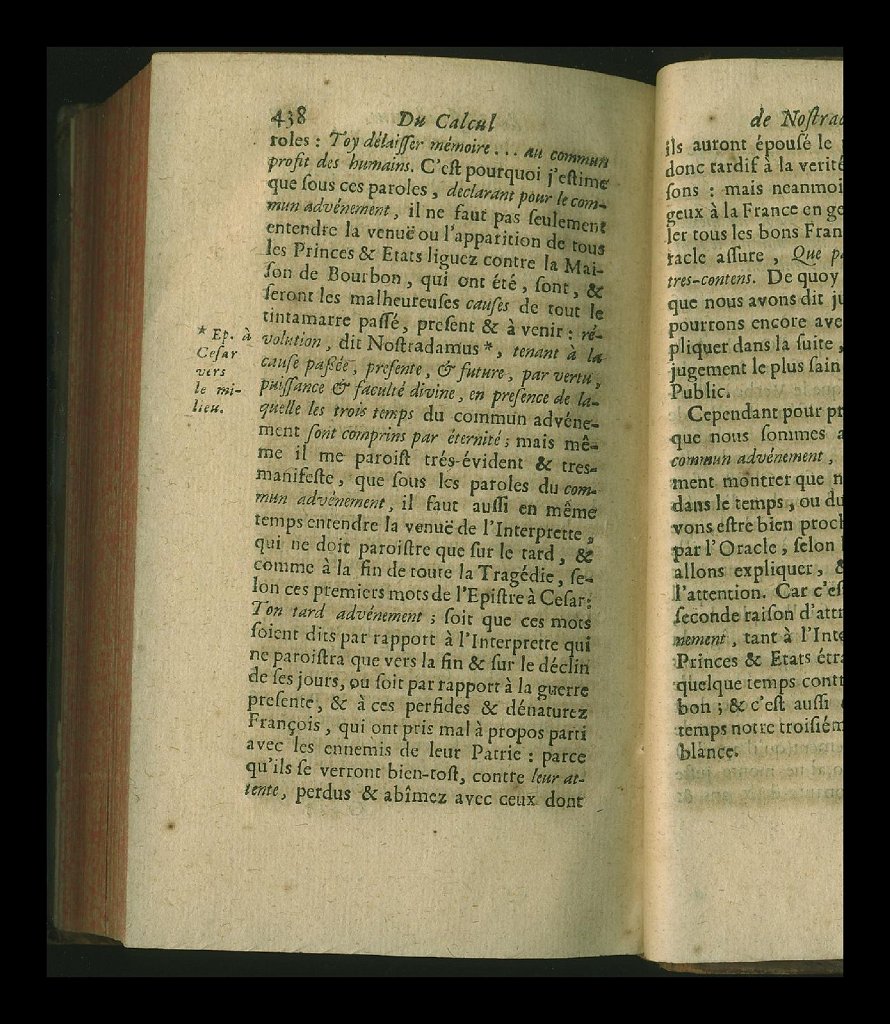 438 Du Calcul
roles : Toy délaiſſer mémoire... au commun
profit des humains. C'eſt pourquoi j'eſtime
que ſous ces paroles, déclarant pour le com-
mun advénement, il ne faut pas ſeulement
entendre la venuë ou l'apparition de tous
les Princes & Etats liguez contre la Mai-
ſon de Bourbon, qui ont été, ſont, &
ſeront les malheureuſes cauſes de tout le
tintamarre paſſé, preſent & à venir : ré-
volution, dit Noſtradamus *, tenant à la
cauſe paßée, preſente, & future, par vertu,
puiſſance & faculté divine, en preſence de la-
quelle les trois temps du commun advéne-
ment ſont comprins par éternité ; mais mê-
me il me paroiſt trés-évident & tres-
manifeſte, que ſous les paroles du com-
mun advénement, il faut auſſi en même
temps entendre la venuë de l'Interprette,
qui ne doit paroiſtre que ſur le tard, &
comme à la fin de toute la Tragédie, ſe-
lon ces premiers mots de l'Epiſtre à Ceſar :
Ton tard advénement ; ſoit que ces mots
ſoient dits par rapport à l'Interprette qui
ne paroiſtra que vers la fin & ſur le déclin
de ſes jours, ou ſoit par rapport à la guerre
preſente, & à ces perfides & dénaturez
François, qui ont pris mal à propos parti
avec les ennemis de leur Patrie : parce
qu'ils ſe verront bien-toſt, contre leur at-
tente, perdus & abîmez avec ceux dont
* Ep. à
Ceſar
vers
le mi-
lieu.
de Noſtrad
ils auront épouſé le
donc tardif à la verité
ſons : mais neanmoi
geux à la France en ge
ler tous les bons Fran
racle aſſure, Que p
tres-contens. De quoy
que nous avons dit ju
pourrons encore ave
pliquer dans la ſuite,
jugement le plus ſain
Public.
Cependant pour pr
que nous ſommes a
commun advénement,
ment montrer que n
dans le temps, ou du
vons eſtre bien proch
par l'Oracle, ſelon
allons expliquer, &
l'attention. Car c'eſ
ſeconde raiſon d'attr
nement, tant à l'Inte
Princes & Etats étra
quelque temps contr
bon ; & c'eſt auſſi
temps notre troiſiém
blance.